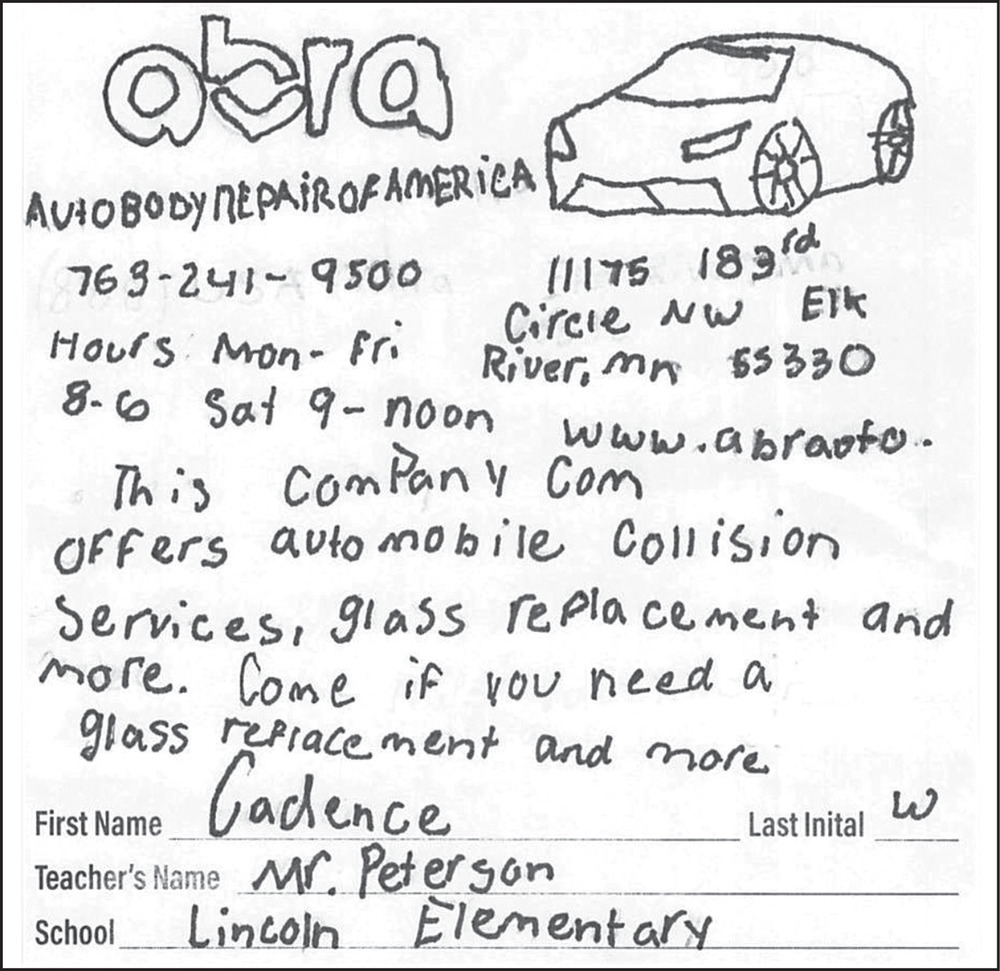 abra
AUTOBODY REPAIR OF AMERICA
763-241-9500
11175 183rd
Circle NW Elk
River, mn 55330
Hours Mon-Fri
8-6 Sat 9-noon
www.abraoto.
com
This company
offers automobile collision
Services, glass replacement and
more. Come if you need a
glass replacement and more.
First Name Cadence Last Inital W
Teacher's Name Mr. Peterson
School Lincoln Elementary